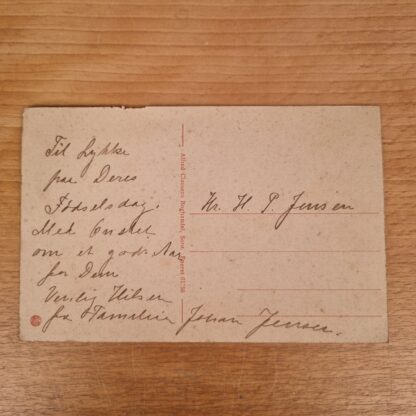 Til Lykke
paa Deres
Fødselsdag.
Med Ønsket
om et godt Aar
for Dem
Venlig Hilsen
fra Familien Johan Jensen.
Hr. H. P. Jensen
Alfred Clausens Boghandel, Sorø.